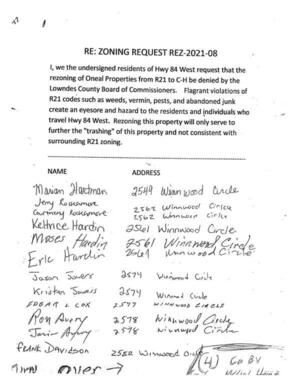 RE: ZONING REQUEST REZ-2021-08
I, we the undersigned residents of Hwy 84 West request that the
rezoning of Oneal Properties from R21 to C-H be denied by the
Lowndes County Board of Commissioners. Flagrant violations of
R21 codes such as weeds, vermin, pests, and abandoned junk
create an eyesore and hazard to the residents and individuals who
travel Hwy 84 West. Rezoning this property will only serve to
further the "trashing" of this property and not consistent with
surrounding R21 zoning.
NAME ADDRESS
Marian Hartman 2549 Winnwood Circle
Jerry 2562 Winnwood Circle
Courtney 2562 Winnwood Circle
Keltnce Hardin 2561 Winnwood Circle
Moses Hardin 2561 Winnwood Circle
Eric Hardin 2561 Winnwood Circle
Jason 2574 Winnwood Circle
Kristan 2574 Winnwood Circle
EDGAR L COX 2577 WINNWOOD CIRCLE
Ron Avery 2578 Winnwood Circle
Janie Avery 2578 Winnwood Circle
FRANK DAVIDSON 2582 Winnwood Circle
Turn over → (4) Go BY